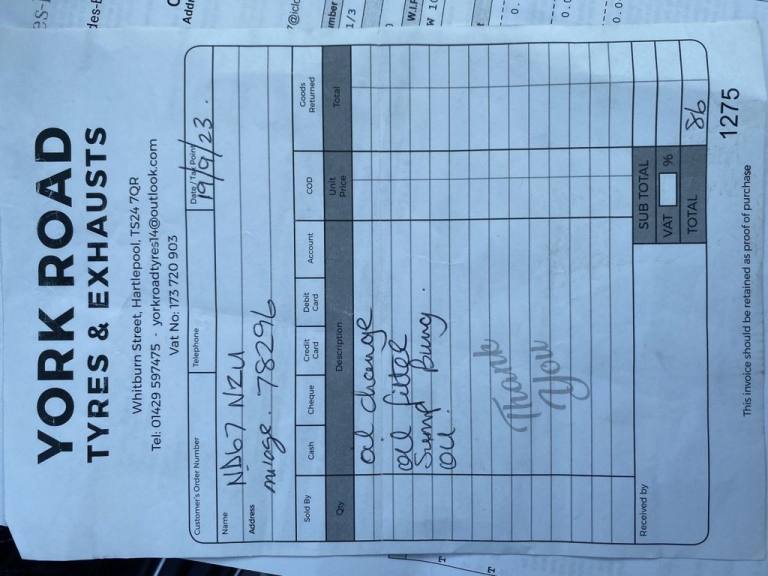 YORK ROAD
TYRES & EXHAUSTS
Whitburn Street, Hartlepool, TS24 7QR
Tel: 01429 597475 - yorkroadtyres14@outlook.com
Vat No: 173 720 903
Customer's Order Number Telephone Date / Tax Point
19/9/23.
Name ND67 NZU
Address milage. 78296
Sold By Cash Cheque Credit Card Debit Card Account COD Goods Returned
Qty Description Unit Price Total
oil change
oil filter
Sump bung.
oil.
Thank
You
Received by
SUB TOTAL
VAT %
TOTAL 86
1275
This invoice should be retained as proof of purchase
des-E
7@icl
1/3
W.I.P
W 10
0.
0.0
0.0